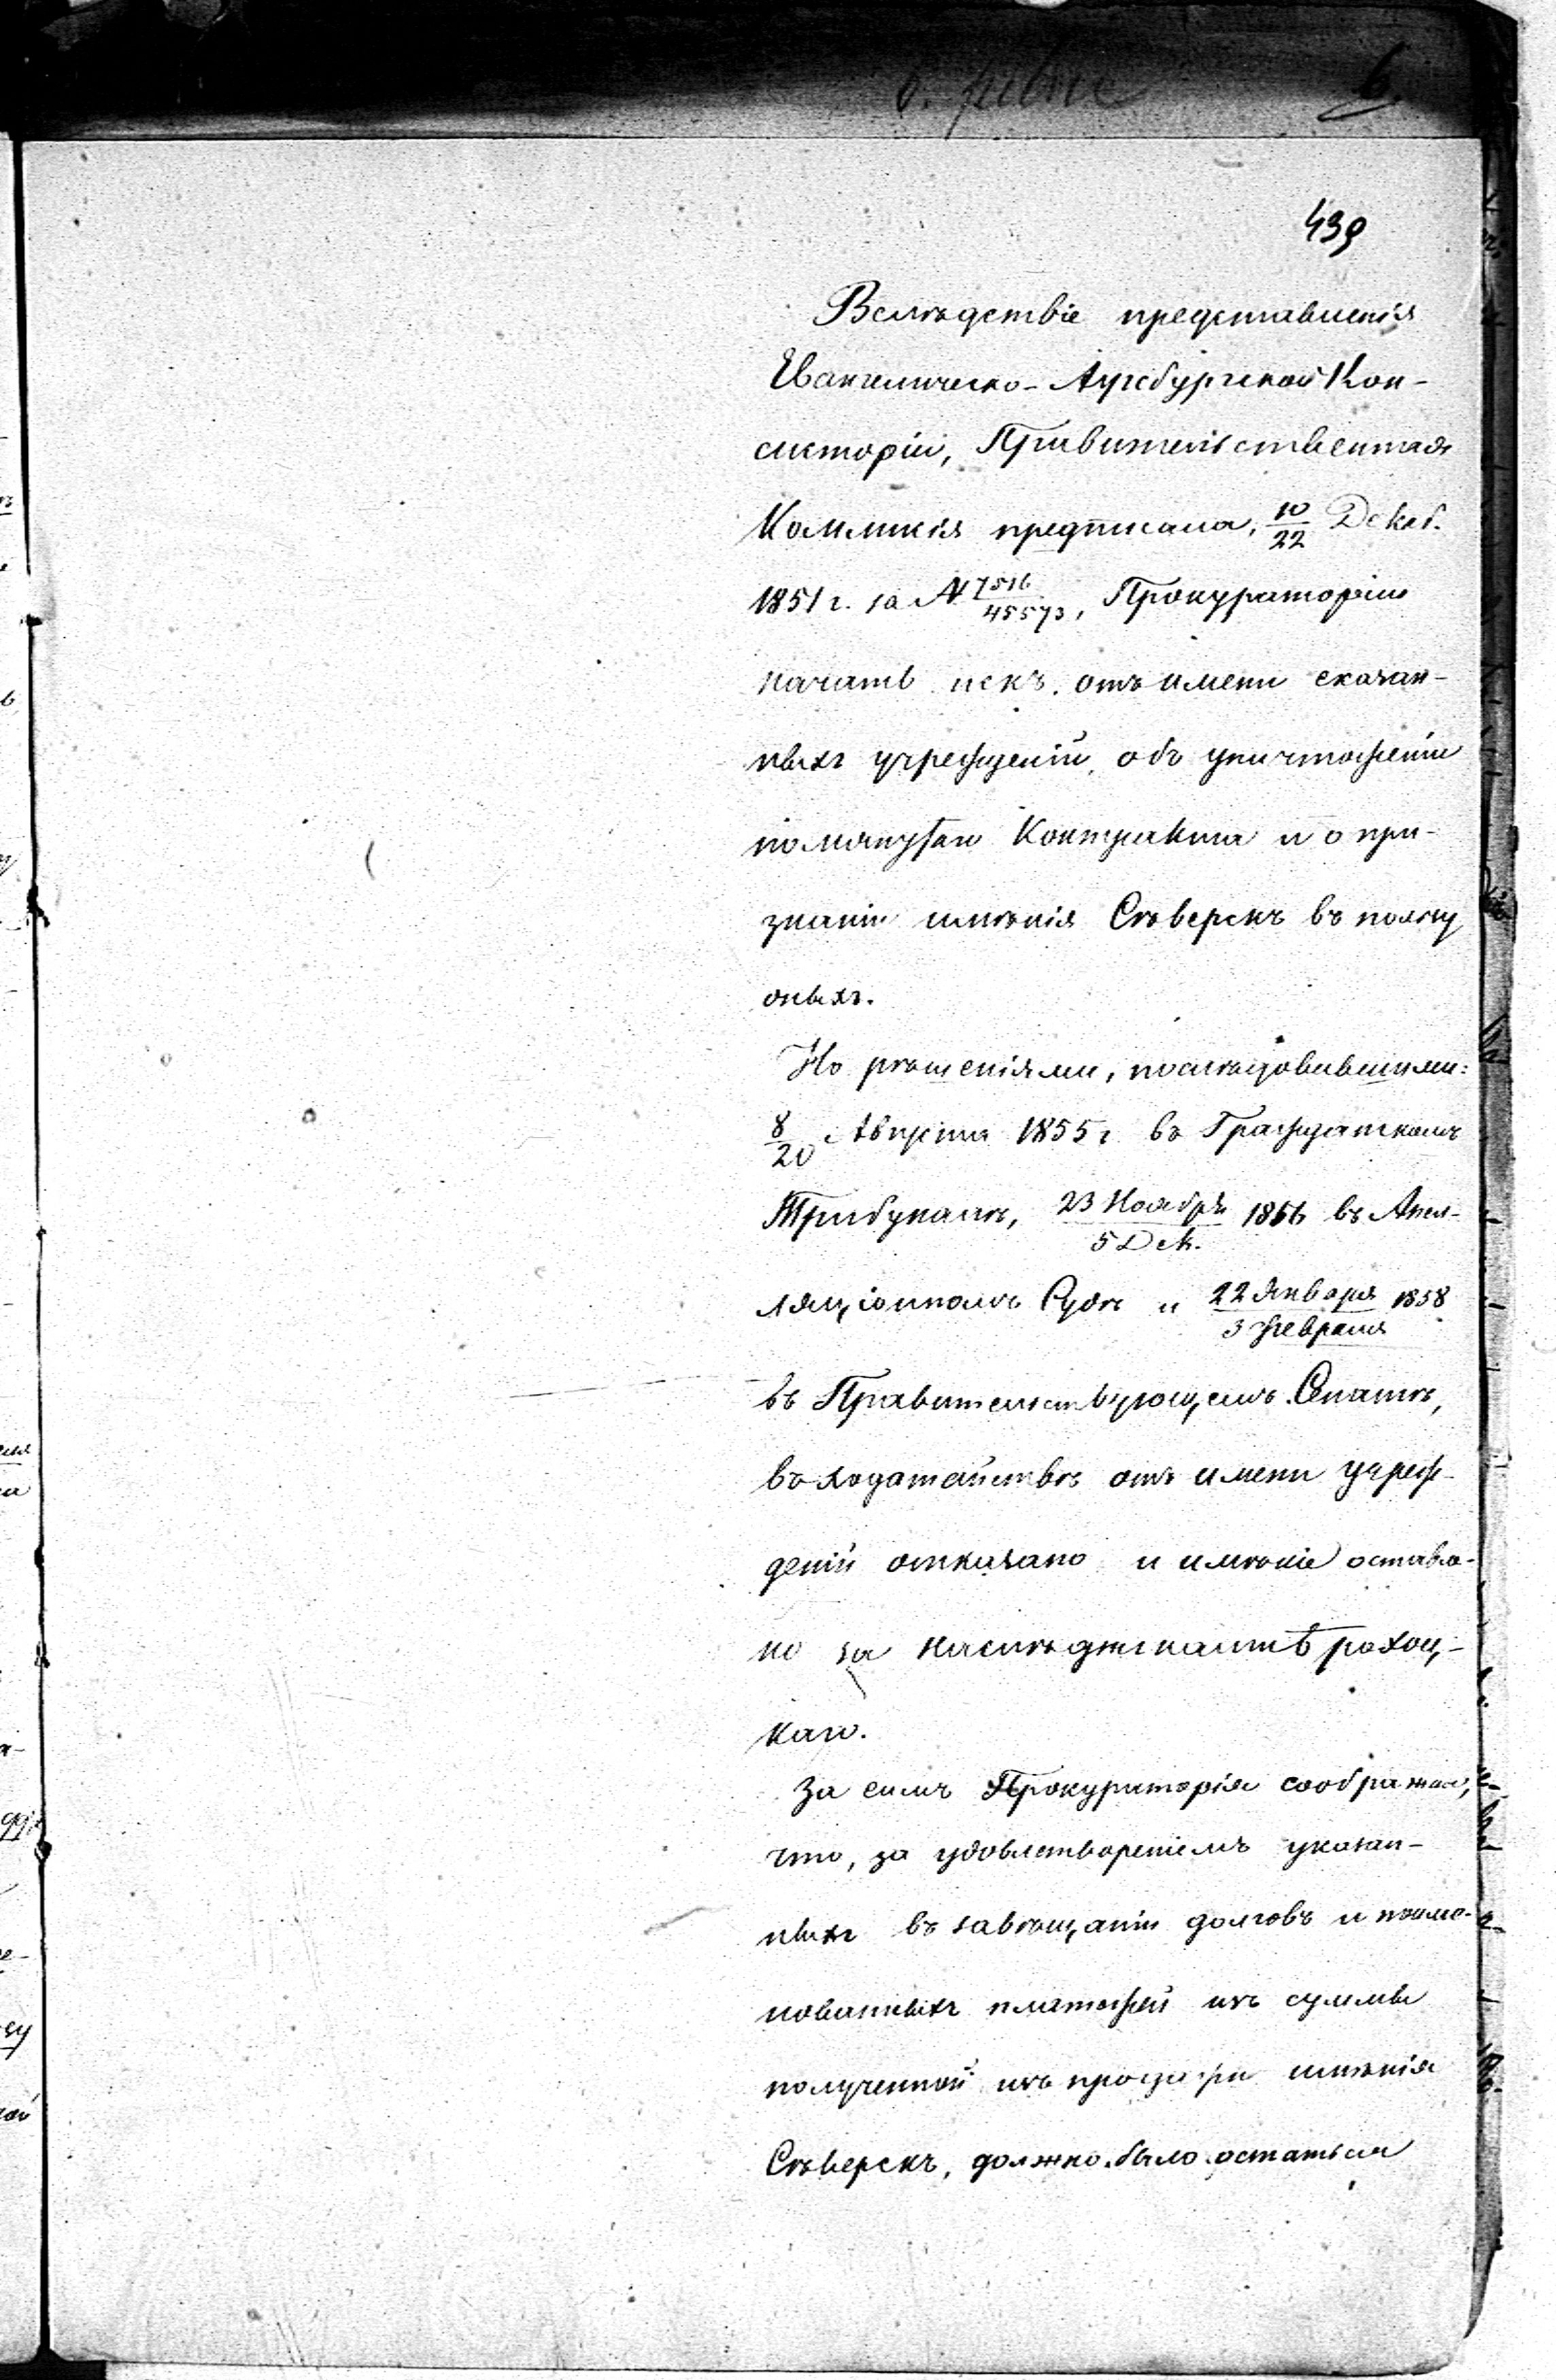 6.
439
Вслѣдствіе представленія
Евангелическо-Аугсбургской Кон-
систоріи, Правительственная
Коммисія предписала, 10/22 Декаб.
1851 г. за № 7516/45573, Прокураторіи
начать искъ отъ имени сказан-
ныхъ учрежденій, объ уничтоженіи
помянутаго Контракта и о при-
знаніи имѣнія Сѣверскъ въ пользу
оныхъ.
Но рѣшеніями, послѣдовавшими:
8/20 Августа 1855 г. въ Гражданскомъ
Трибуналѣ, 23 Ноября/5 Дек. 1856 въ Апел-
ляціонномъ Судѣ и 22 Января/3 Февраля 1858
въ Правительствующемъ Сенатѣ,
въ ходатайствѣ отъ имени учреж-
деній отказано и имѣніе оставле-
но за наслѣдниками
каго.
За симъ Прокураторія соображая,
что, за удовлетвореніемъ указан-
ныхъ въ завѣщаніи долговъ и поиме-
нованныхъ платежей изъ суммы
полученной изъ продажи имѣнія
Сѣверскъ, должно было остаться